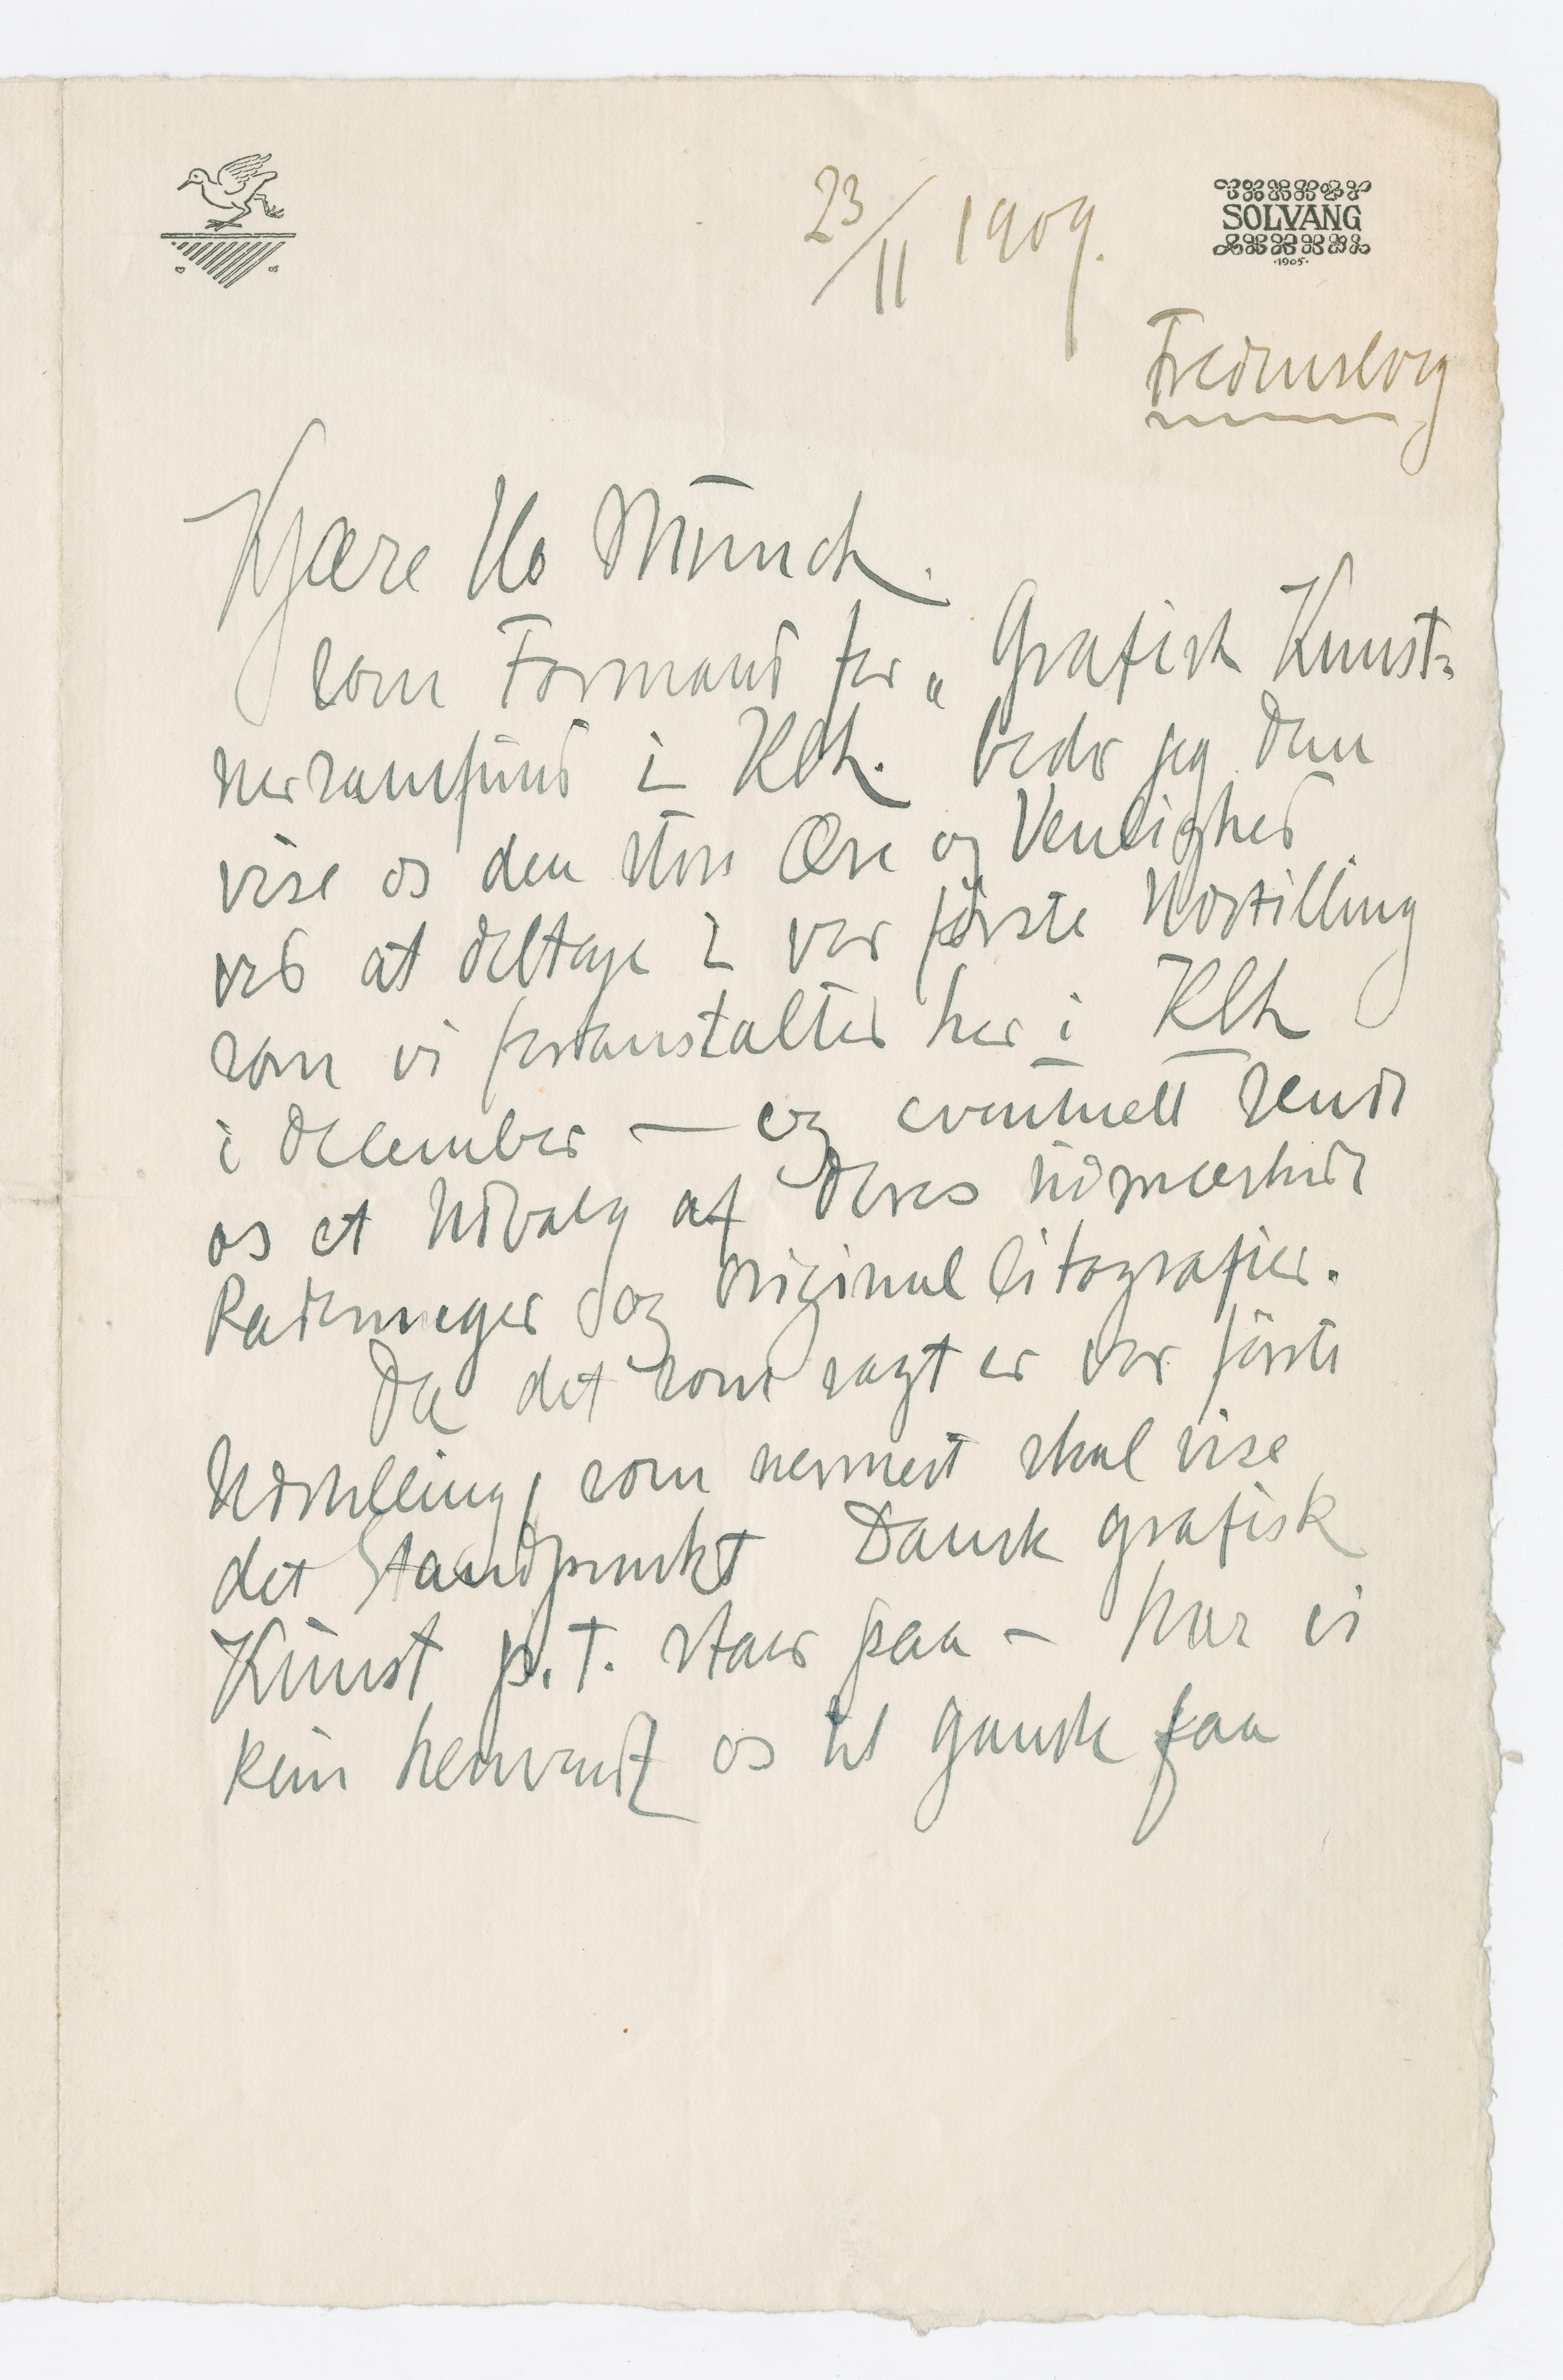 23/11 1909.
SOLVANG
·1905·
Fredensborg
Kjære Hr Munch.
Som Formand for „Grafisk Kunst-
nersamfund i Kbh. beder jeg Dem
vise os den store Ære og Venlighed
ved at deltage i vor første Udstilling
som vi foranstalter her i Kbh
i December — og eventuelt sende
os et Udvalg af Deres udmærkede
Raderinger og Original litografier.
Da det som sagt er vor første
Udstilling, som nærmest skal vise
det Standpunkt Dansk grafisk
Kunst p.T. staar paa – har vi
kun henvendt os til ganske faa